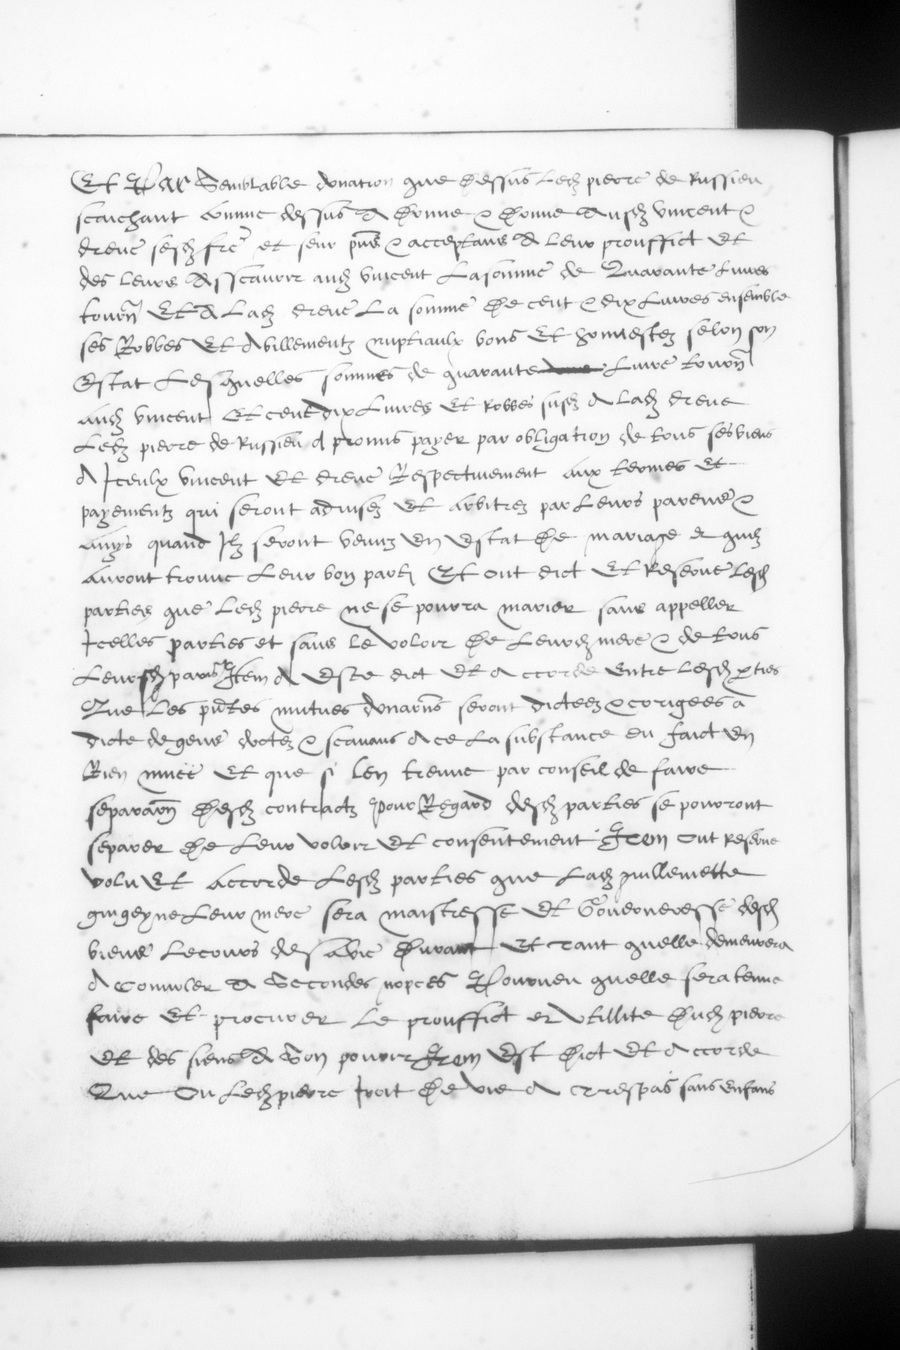 Et Par Semblable donation que dessus Led pierre de Russieu
scaichant comme dessus A donne & donne Ausd vincent &
dreue sesd frē et seur pñs & acceptans A leur prouffict Et
des leurs Asscavoir aud vincent La somme de Quarante Livres
tourñ Et A Lad dreue La somme de cent & dix Livres ensemble
ses Robbes Et Abillementz nuptiaulx bons Et honnestez selon son
Estat Lesquelles sommes de quarante Livre tourñ
Aud vincent Et cent dix Livres Et Robbes susd A Lad dreue
Led pierre de Russieu A promis payer par obligation de tous ses biens
A Iceulx vincent Et dreue Respectivement Aux termes Et
payementz qui seront advisez Et Arbitrez par Leurs parens &
Amys quand Ilz seront venuz En Estat de mariage et quilz
Auront trouve Leur bon parti Et ont dict Et Reserve Lesd
parties que Led pierre ne se pourra marier sans appeller
Icelles parties et sans Le voloir de Leursd mere & de tous
Leursd parens Item A Este dict Et Accorde Entre Lesd pties
Que Les pntes mutues donatiōns seront dictees & corigees a
dicte de gens doctez & scavans A ce La substance en faict En
Rien muee Et que si Len treuve par conseil de faire
separatiōn desd contractz pour Regard desd parties se pourront
separer de Leur voloir Et consentement Item ont Reserve
volu Et Accorde Lesd parties que Lad guillemette
gingeyne Leur mere sera maistresse Et Gouverneresse desd
biens Le cours de sa vie durant Et tant quelle demeurera
A convoler A Secondes nopces Pourveu quelle sera tenue
faire Et procurer Le prouffict et Utillite dud pierre
Et des siens A Son pouvoir Item Est dict Et Accorde
Que Ou Led pierre Iroit de vie A trespas sans enfans